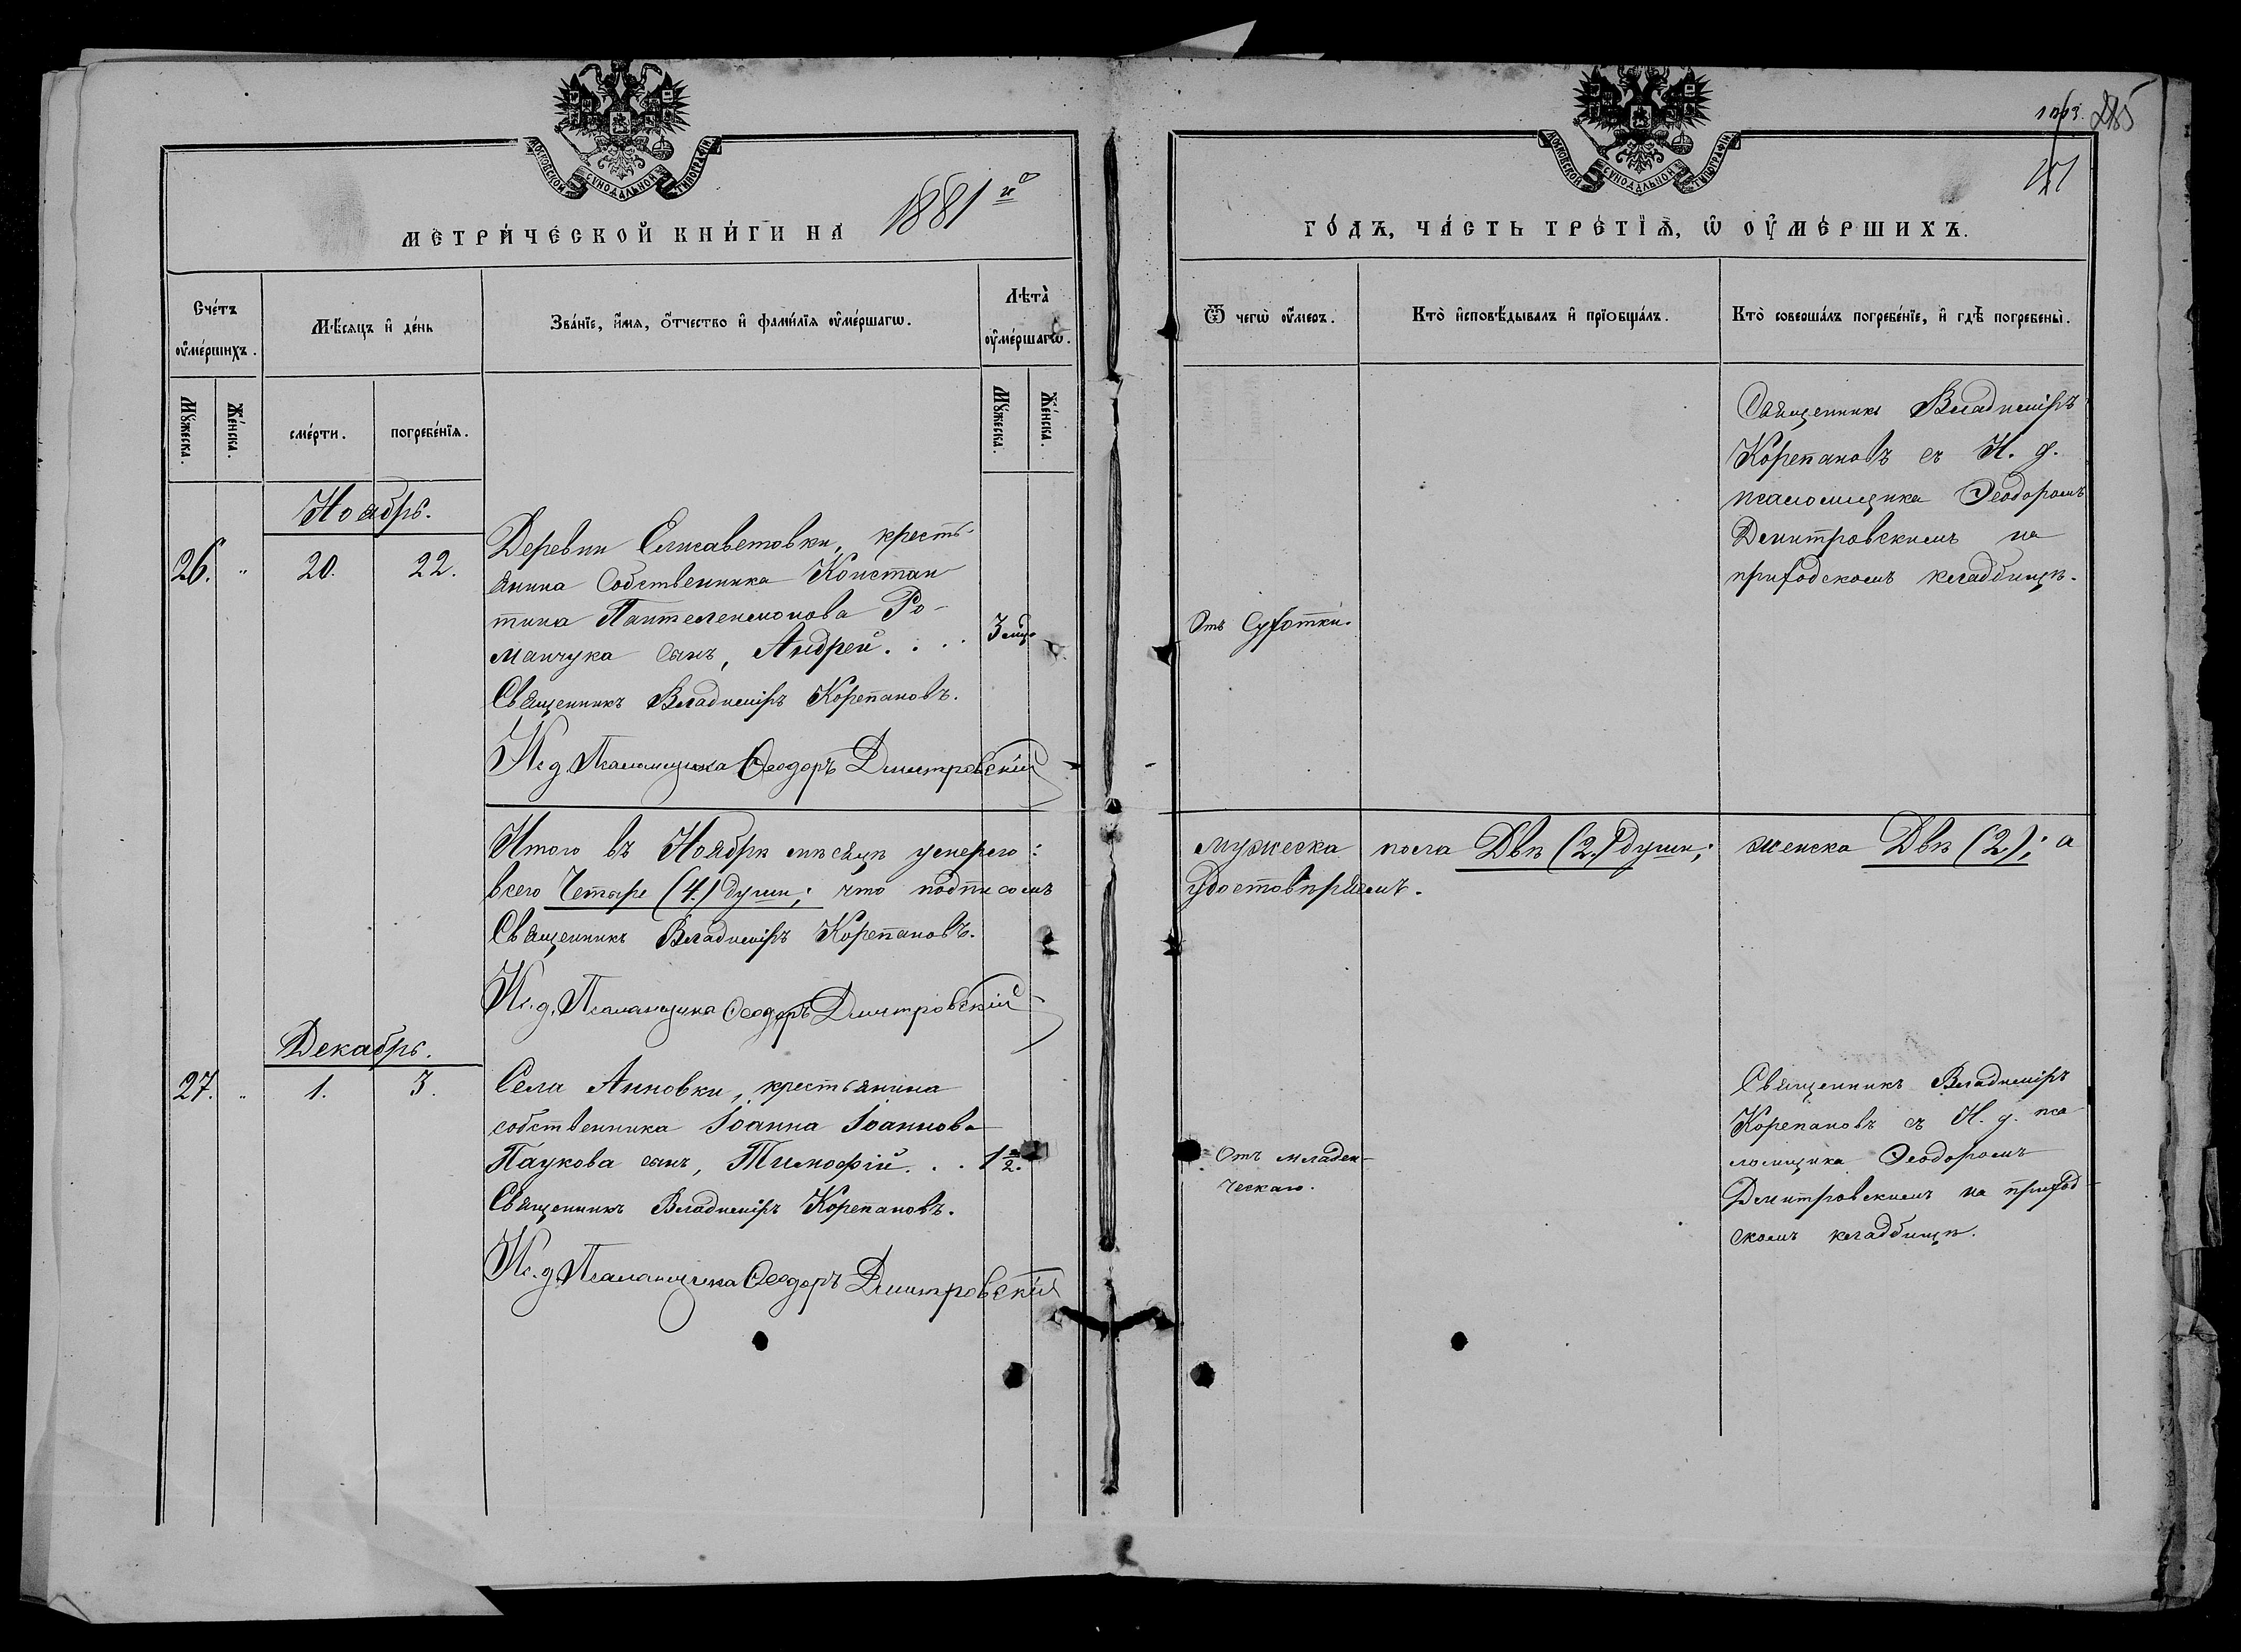 МОСКОВСКОЙ СѴНОДАЛЬНОЙ ТИПОГРАФІИ
МЕТРИ́ЧЕСКОЙ КНИ́ГИ НА 1881й
Сче́тъ оу҆ме́ршихъ.
Мѣ́сяцъ и҆ де́нь
Зва́нїе, и҆́мя, ѻ҆́тчество и҆ фами́лїя оу҆ме́ршагѡ.
Лѣта̀ оу҆ме́ршагѡ.
Мꙋ́жеска.
Же́нска.
сме́рти.
погребе́нїя.
Мꙋ́жеска.
Же́нска.
Ноябрь.
26. „ 20. 22.
Деревни Елисаветовки, кресть-
янина собственника Констан-
тина Пантелеимонова Ро-
манчука сынъ, Андрей. . . . 3 мѣц.
Священникъ Владиміръ Корепановъ.
И. д. Псаломщика Ѳеодоръ Дмитровскій
Итого въ Ноябрѣ мѣсяцѣ умерло:
всего Четыре (4.) души; что подписомъ
Священникъ Владиміръ Корепановъ.
И. д. Псаломщика Ѳеодоръ Дмитровскій
Декабрь.
27. „ 1. 3.
Села Анновки, крестьянина
собственника Іоанна Іоаннова
Паукова сынъ, Тимофій. . . 1 ½.
Священникъ Владиміръ Корепановъ.
И. д. Псаломщика Ѳеодоръ Дмитровскій
МОСКОВСКОЙ СѴНОДАЛЬНОЙ ТИПОГРАФІИ
215
ГО́ДЪ, ЧА́СТЬ ТРЕ́ТЇѦ, Ѡ ОУ҆МЕ́РШИХЪ.
Ѿ чегѡ̀ оу҆́меръ.
Кто̀ и҆сповѣ́дывалъ и҆ прїѻбща́лъ.
Кто̀ соверша́лъ погребе́нїе, и҆ гдѣ̀ погребены̀.
Священникъ Владиміръ
Корепановъ съ И. д.
псаломщика Ѳеодоромъ
Дмитровскимъ на
приходскомъ кладбищѣ.
Отъ Сухотки.
мужеска пола Двѣ (2.) души; женска Двѣ (2.); а
удостовѣряемъ.
Священникъ Владиміръ
Корепановъ съ И. д. пса-
ломщика Ѳеодоромъ
Дмитровскимъ на приход-
скомъ кладбищѣ.
Отъ младен-
ческаго.